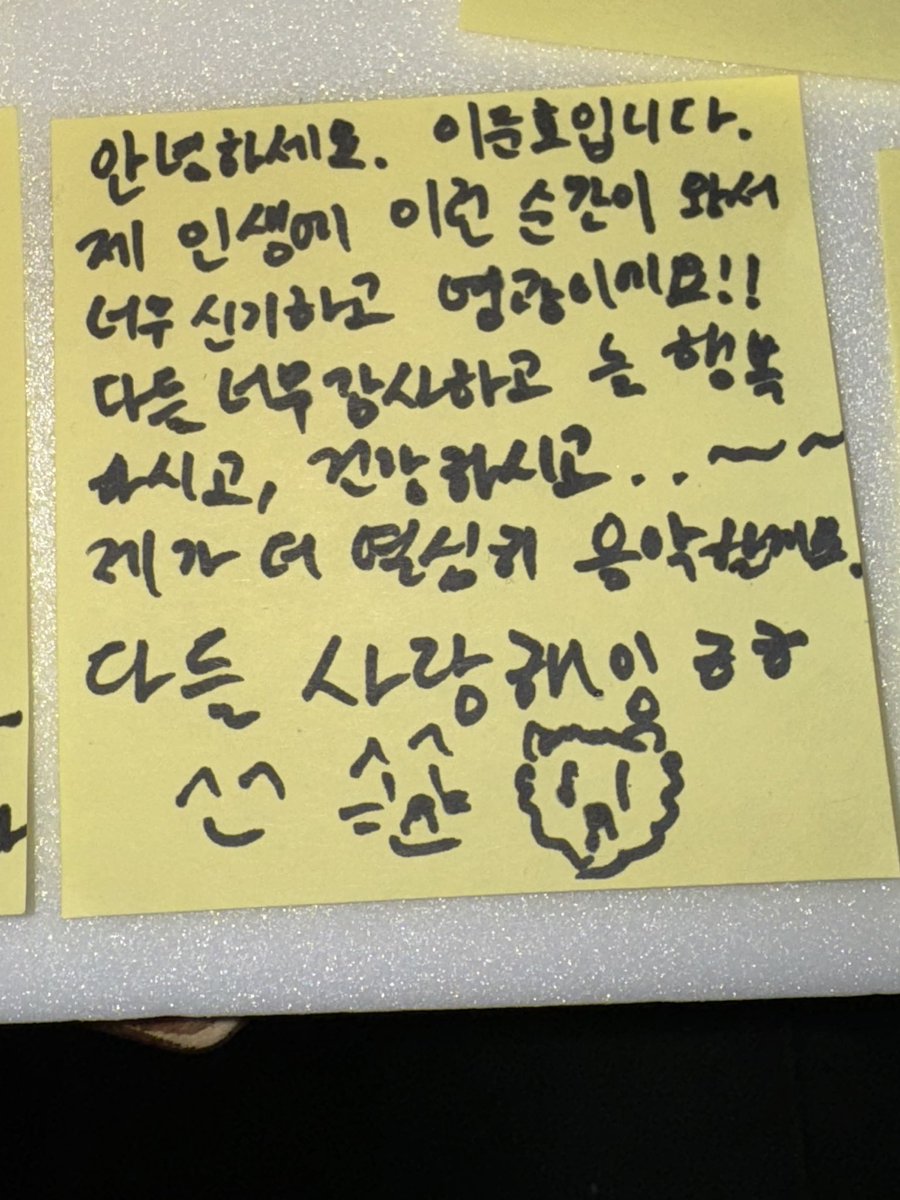 안녕하세요. 이문호입니다.
제 인생에 이런 순간이 와서
너무 신기하고 영광이네요!!
다들 너무 감사하고 늘 행복
하시고, 건강하시고..~~
제가 더 열심히 음악할게요.
다들 사랑해잉 ㅎㅎ